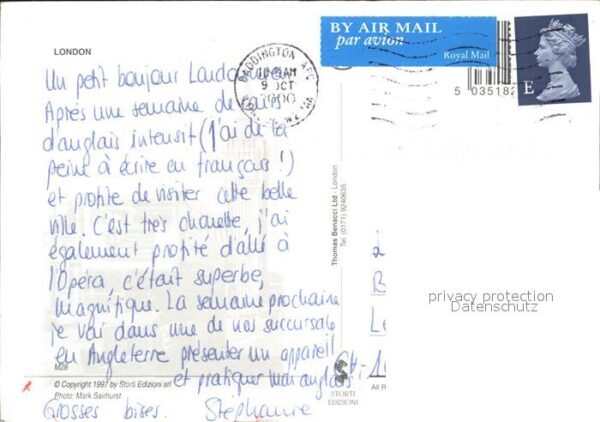 LONDON
BY AIR MAIL
par avion
Royal Mail
PADDINGTON
9 OCT
E
5 035182
Un petit bonjour
Après une semaine de cours
d'anglais intensif (j'ai de la
peine à écrire en français!)
et profite de visiter cette belle
ville. C'est très chouette, j'ai
également profité d'allé à
l'Opéra, c'était superbe,
magnifique. La semaine prochaine
je vai dans une de nos succursale
en Angleterre présenter un appareil
et pratiquer mon anglais
Grosses bises. Stéphanie
M28
© Copyright 1997 by Storti Edizioni srl
Photo: Mark Sainhurst
Thomas Benacci Ltd - London
Tel (0171) 9240635
CH-1
STORTI
EDIZIONI
All R
privacy protection
Datenschutz